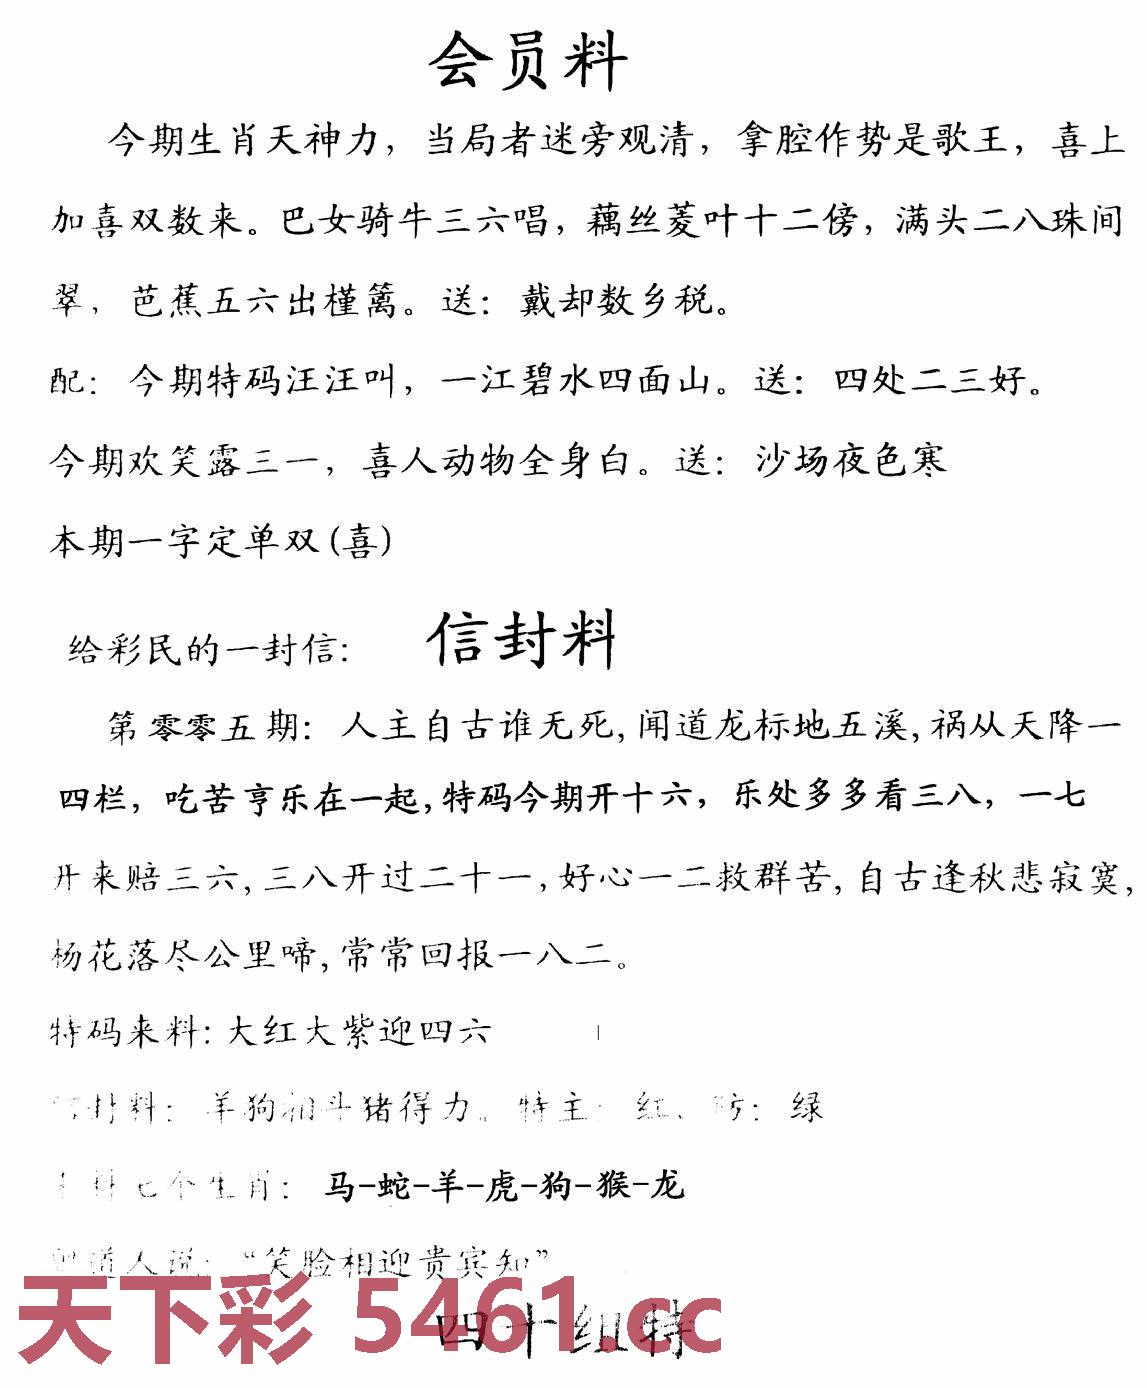 会员料
今期生肖天神力，当局者迷旁观清，拿腔作势是歌王，喜上
加喜双数来。巴女骑牛三六唱，藕丝菱叶十二傍，满头二八珠间
翠，芭蕉五六出槿篱。送：戴却数乡税。
配：今期特码汪汪叫，一江碧水四面山。送：四处二三好。
今期欢笑露三一，喜人动物全身白。送：沙场夜色寒
本期一字定单双(喜)
给彩民的一封信: 信封料
第零零五期：人主自古谁无死,闻道龙标地五溪,祸从天降一
四栏，吃苦亨乐在一起,特码今期开十六，乐处多多看三八，一七
开来赔三六,三八开过二十一,好心一二救群苦,自古逢秋悲寂寞,
杨花落尽公里啼,常常回报一八二。
特码来料:大红大紫迎四六
封料：羊狗相斗猪得力。特主：红、防：绿
七个生肖：马-蛇-羊-虎-狗-猴-龙
道人说：“笑脸相迎贵宾知”
四十组特
天下彩 5461.cc